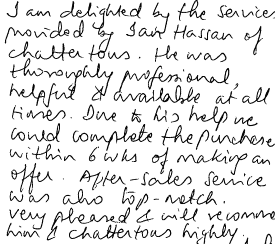 I am delighted by the services
provided by Iain Hassan of
Chattertons. He was
thoroughly professional,
helpful & available at all
times. Due to his help we
could complete the purchase
within 6 wks of making an
offer. After-sales service
was also top-notch.
very pleased & will recomme
him & chattertons highly.